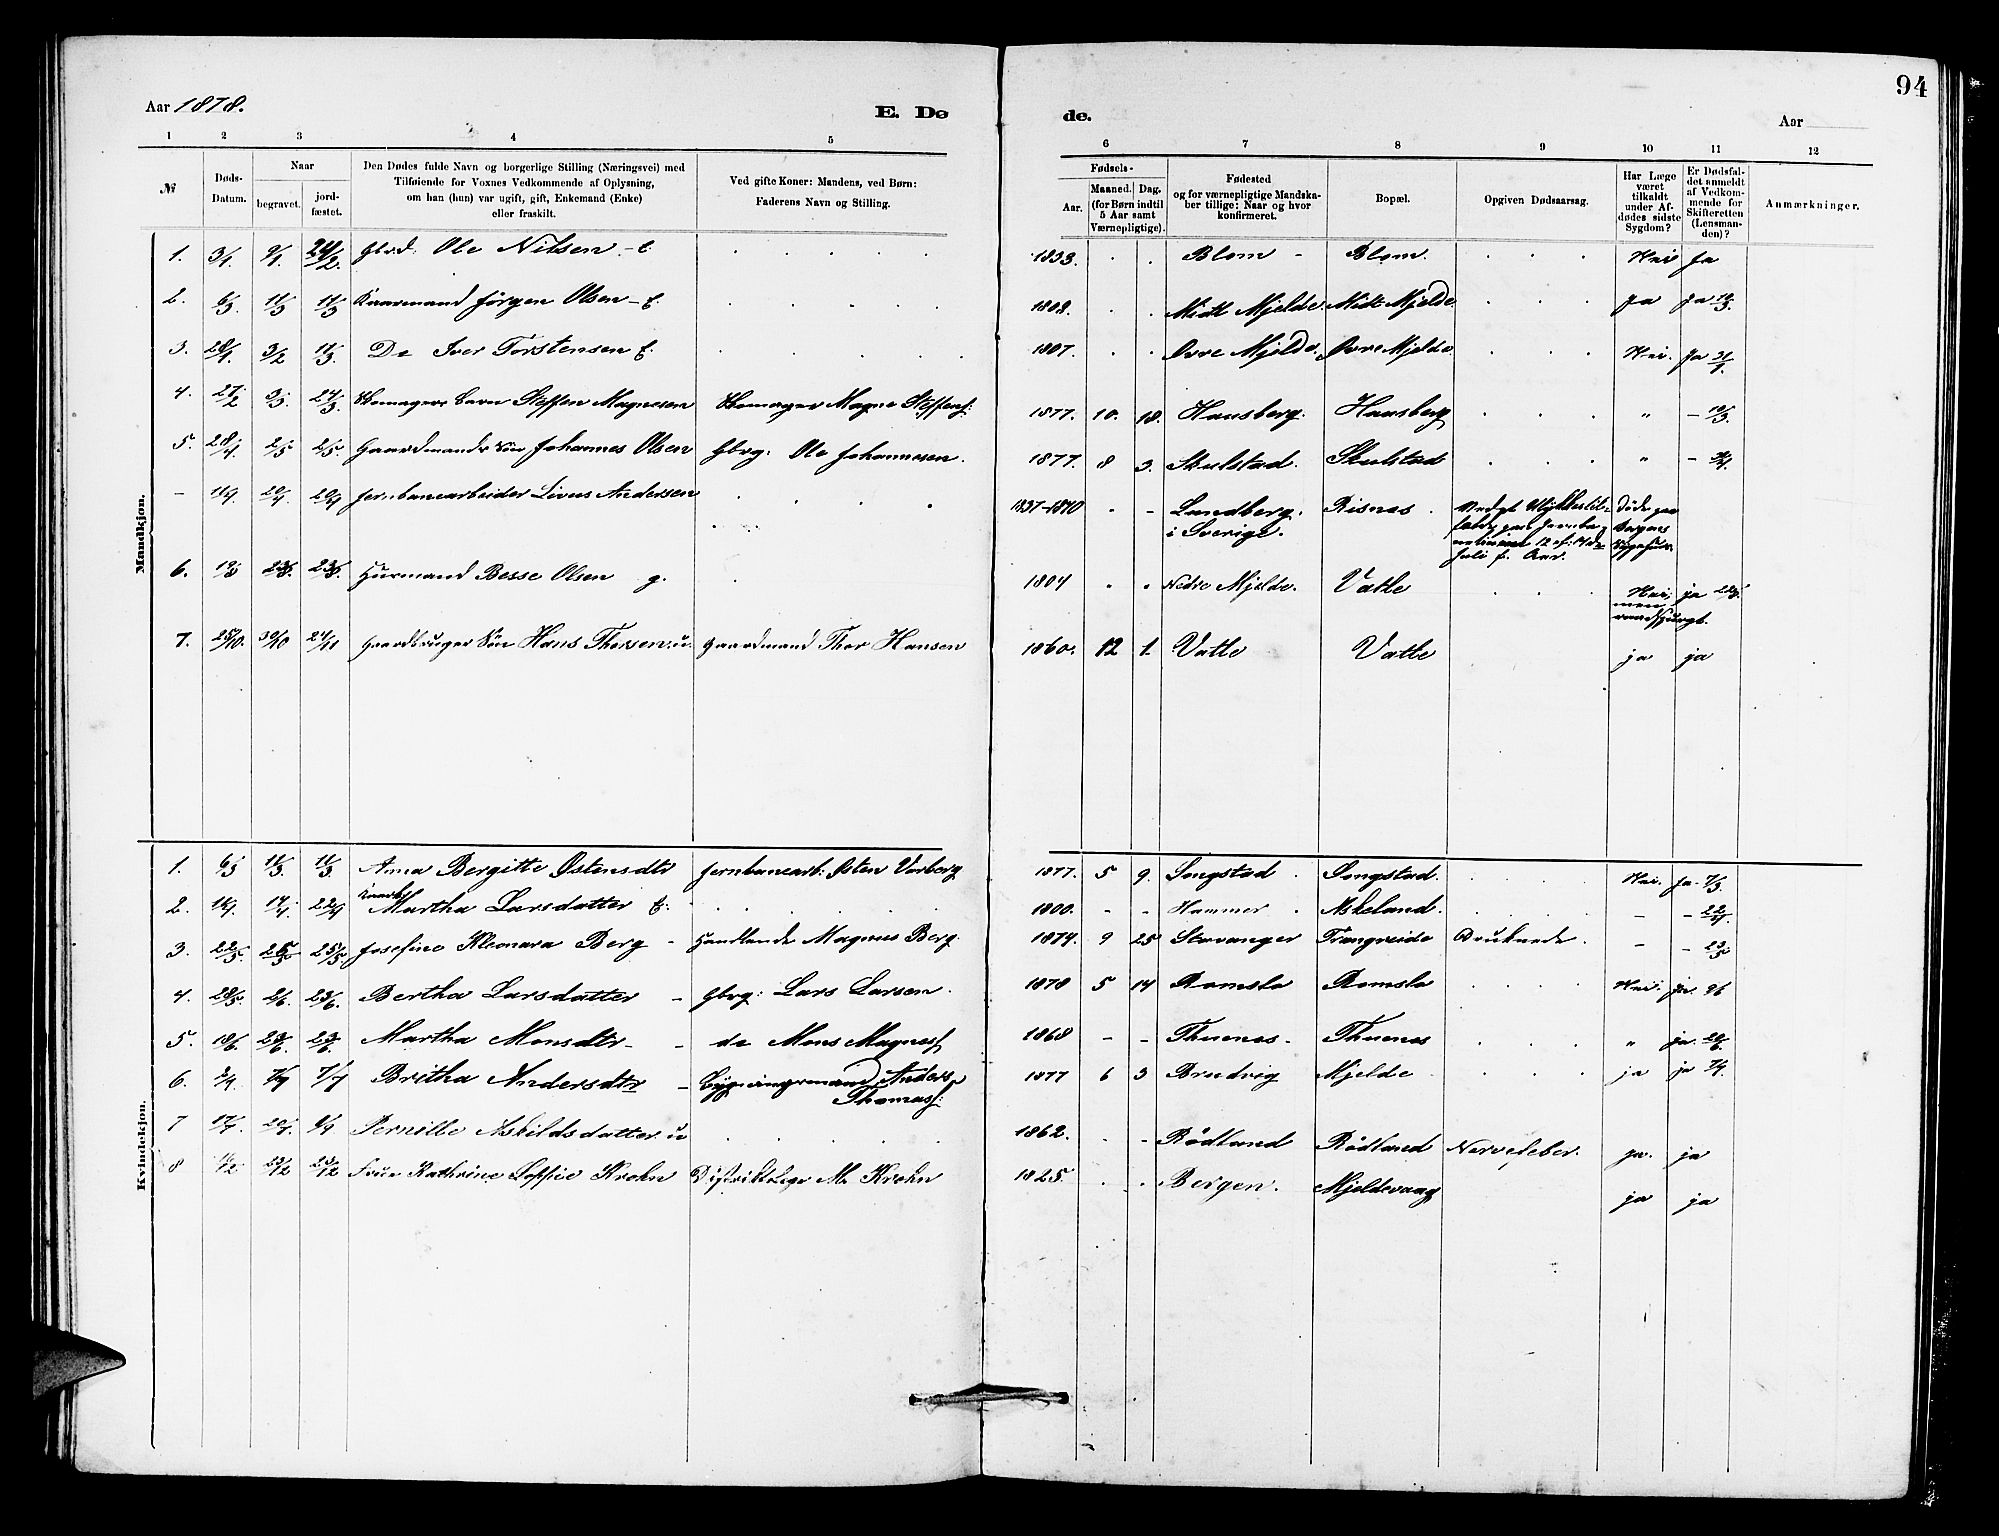 94
Aar 1878.
E. Dø
de.
Aar
1 2 3 4 5
6 7 8 9 10 11 12
№
Døds-Datum.
Naar
begravet.
jord-fæstet.
Den Dødes fulde Navn og borgerlige Stilling (Næringsvei) med
Tilføiende for Voxnes Vedkommende af Oplysning,
om han (hun) var ugift, gift, Enkemand (Enke)
eller fraskilt.
Ved gifte Koner: Mandens, ved Børn:
Faderens Navn og Stilling.
Fødsels-
Aar.
Maaned. Dag.
(for Børn indtil
5 Aar samt
Værnepligtige).
Fødested
og for værnepligtige Mandska-
ber tillige: Naar og hvor
konfirmeret.
Bopæl.
Opgiven Dødsaarsag.
Har Læge
været
tilkaldt
under Af-
dødes sidste
Sygdom?
Er Dødsfal-
det anmeldt
af Vedkom-
mende for
Skifteretten
(Lensman-
den)?
Anmærkninger.
Mandkjøn.
1. 3/1 9/1 Ole Nilsen 1833. Blom Blom. Nei Ja
2. 6/3 11/3 11/3 Kaarmand Jörgen Olsen 1808. Midt Mjelde. Midt Mjelde. Ja Ja
3. 28/1 3/2 11/3 Do Iver Torstensen 1807. Øvre Mjelde Øvre Mjelde Nei. Ja
4. 27/2 24/3 Steffen Magnesen Magne Steffens: 1877. 10. 18. Hansberg. Hansberg „
5. 28/4 2/5 2/5. Gaardmands Sön Johannes Olsen Gbrg: Ole Johannesen. 1877. 8 3. Skulstad. Skulstad „
- Jernbanearbeider Andersen 1837-1840 Lundberg. Risnes.
i Sverige.
6. Husmand Besse Olsen g. 1804 Nedre Mjelde. Vatle Nei, ja
men
raadspurgt.
7. 25/10. 30/10 24/11 Gaardbruger Sön Hans Thorsen. u. Gaardmand Thor Hansen 1860. 12 1. Vatle Vatle ja ja
Kvindekjøn.
1. 6/3 11/3 11/3 Anna Bergitte Østensdtr Jernbanearb: Østen 1877. 5 9. Songstad Songstad. Nei. Ja. 7/3.
2. Martha Larsdatter 1800. Hammer Askeland.
3. 22/5. 25/5. Josefine Kleonara Berg Handlende Magnus Berg. 1874. 9 25 Stavanger Trengereide Druknede.
4. 28/5 2/6. 23/6. Bertha Larsdatter Gbrg: Lars Larsen. 1878 5 14 Romslo Romslo Nei. ja.
5. 18/6. 23/6. 23/6. Martha Monsdtr do Mons Magness 1868 Thuenes Thuenes „ ja. 20/6.
6. 7/7 Britha Andersdtr Bygningsmand Anders 1877 6 3 Brudvig Mjelde ja ja
Thomass:
7 Pernille Askildsdatter. u 1862. Rödland Rödland Nervefeber. ja. ja
8 23/12 23/12 Frue Kathrine Sophie Krohn Distriktslæge M. Krohn 1825. Bergen. Mjeldevaag ja ja